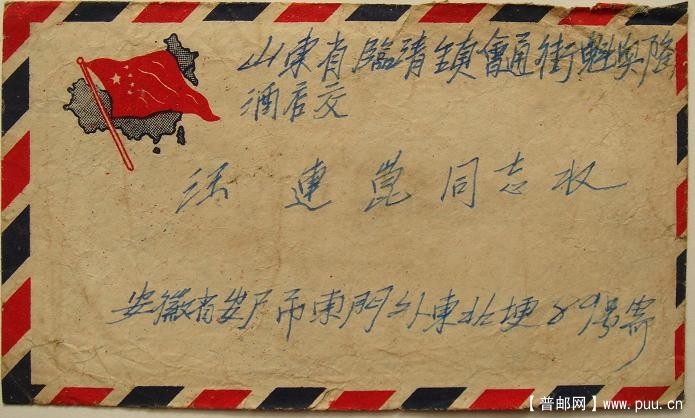 山東省臨清鎮會通街魁興隆
酒店交
汪連崑同志收
安徽省安慶市東門外東北埂89號寄
【普邮网】www.puu.cn